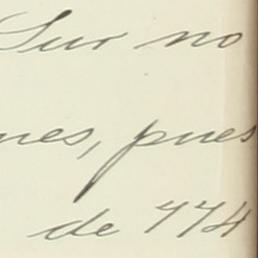 Sur no
nes, pues
de 774